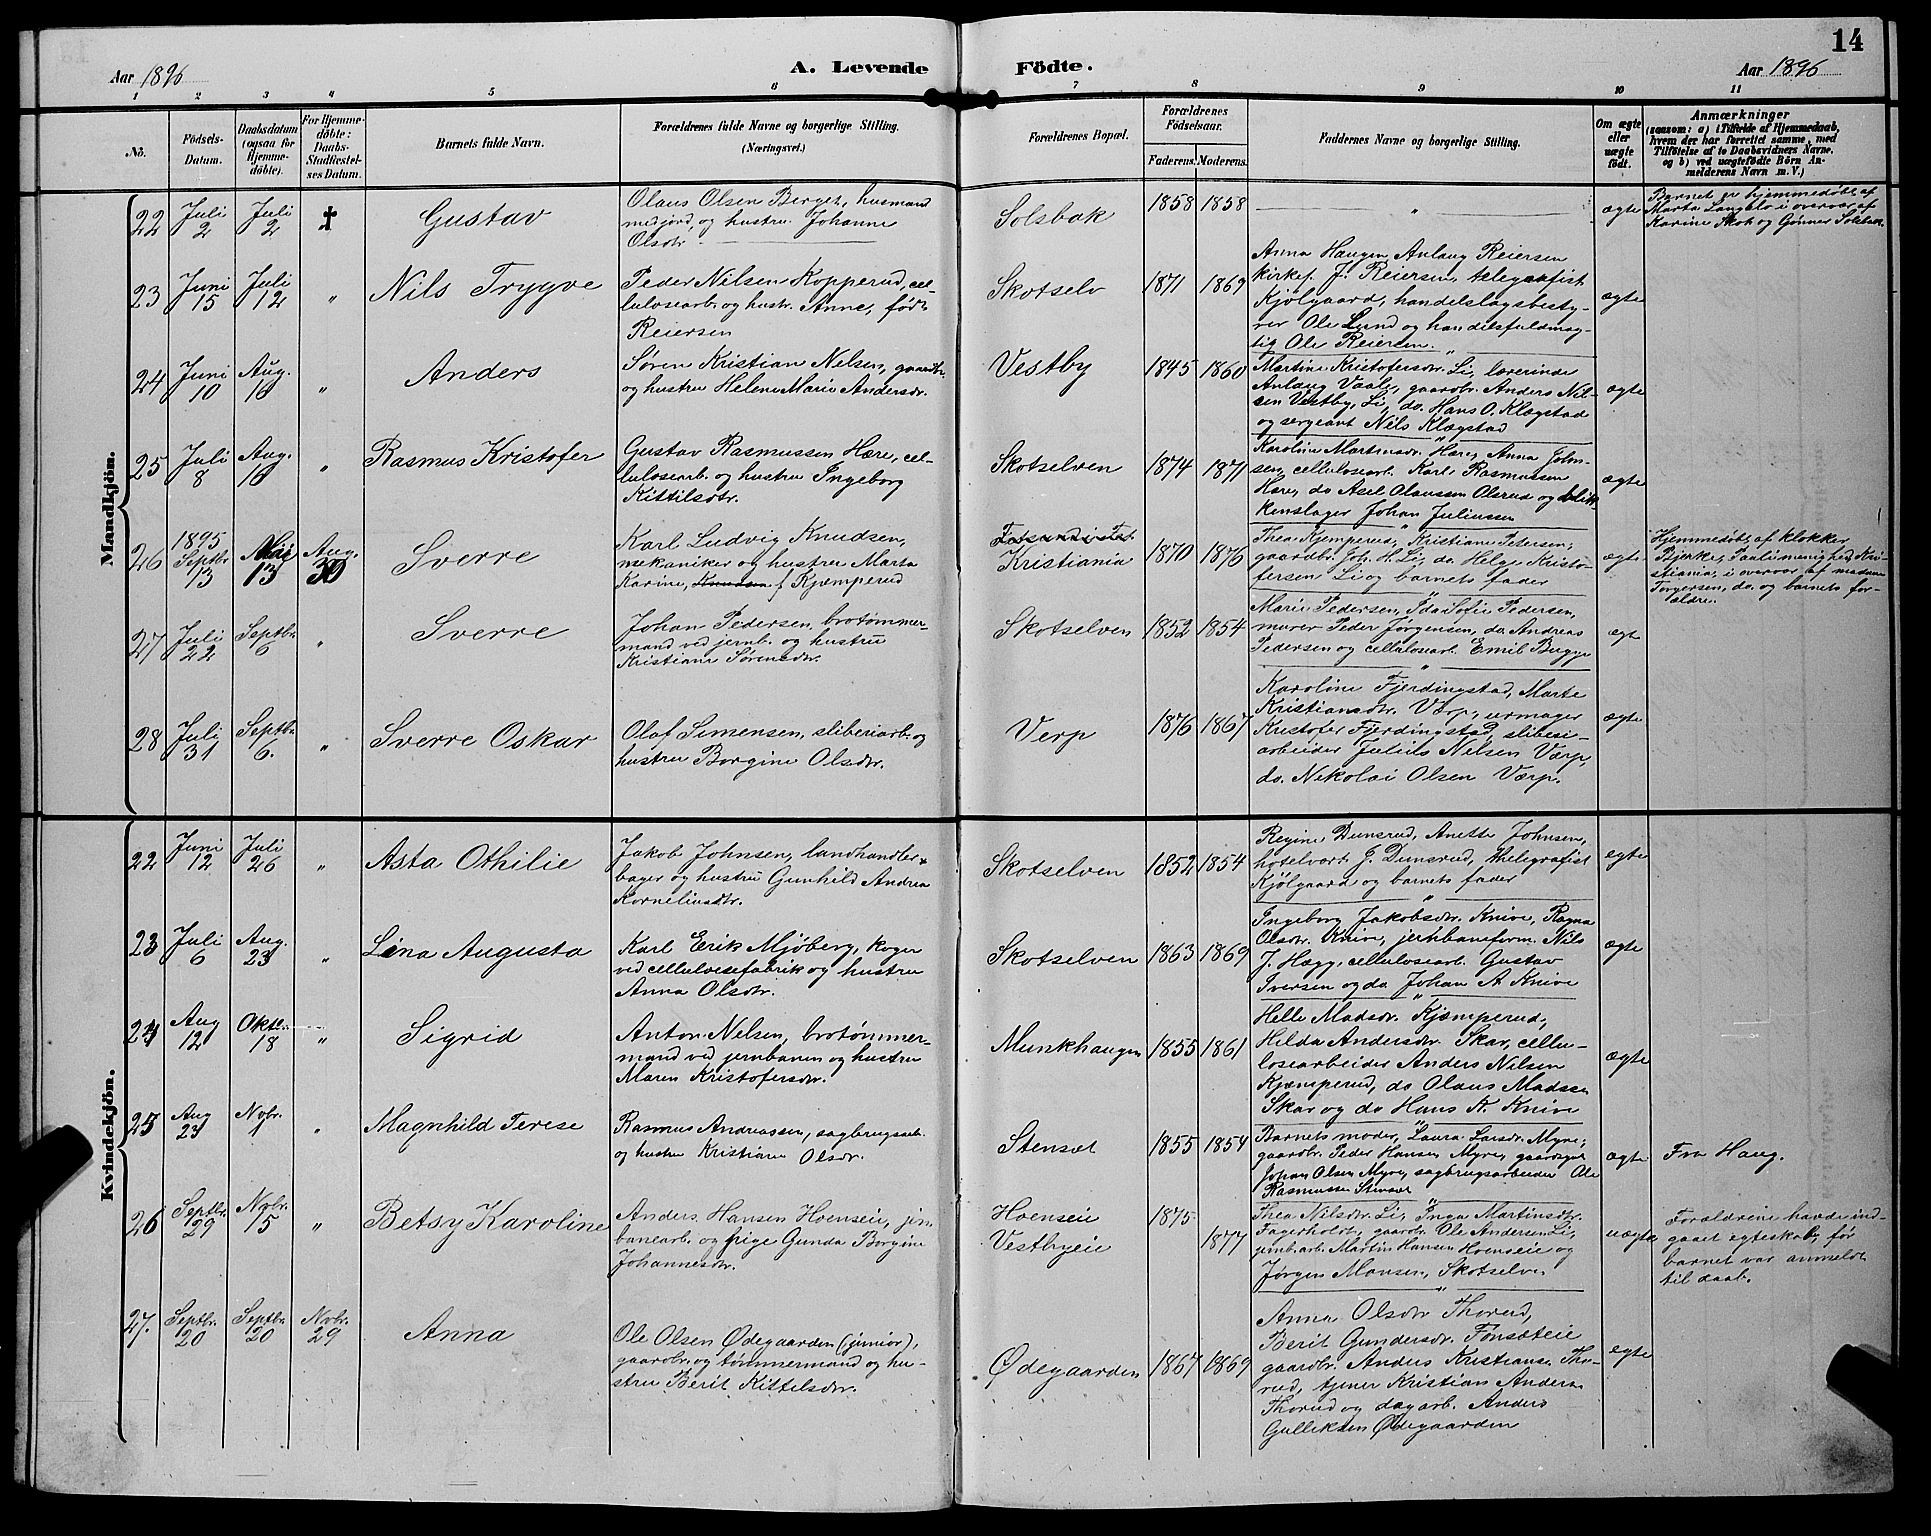 14
Aar 1896
A. Levende Födte.
Aar 1896
1 2 3 4 5 6 7 8 9 10 11
No.
Födsels-
Datum.
Daabsdatum
(ogsaa for
Hjemme-
döbte).
For Hjemme-
döbte:
Daabs-
Stadfæstel-
ses Datum.
Barnets fulde Navn.
Forældrenes fulde Navne og borgerlige Stilling.
(Næringsvei.)
Forældrenes Bopæl.
Forældrenes
Födselsaar.
Faderens. Moderens.
Faddernes Navne og borgerlige Stilling.
Om ægte
eller
uægte
födt.
Anmærkninger
(saasom: a) i Tilfælde af Hjemmedaab,
hvem der har forrettet samme, med
Tilföielse af to Daabsvidners Navne,
og b) ved uægtefödte Börn An-
melderens Navn m. V.)
Mandkjön.
22
Juli
2
Juli
2
✝
Gustav
Olaus Olsen Berget, husmand
med jord, og hustru Johanne
Olsdtr.
Solsbak
1858 1858
"
ægte
Barnet er hjemmedøbt af
Marta Langtlo i overvær af
Karine Skok og Gønner Solsbak.
23
Juni
15
Juli
12
"
Nils Trygve
Peder Nilsen Kopperud, cel-
lulosearb. og hustr. Anne, født
Reiersen
Skotselv
1871 1869
Anna Haugen, Anlaug Reiersen
kirkes. J. Reiersen, telegrafist
Kjölgaard, handelslagsbesty-
rer Ole Lund og handelsfuldmæg-
tig Ole Reiersen.
ægte
24
Juni
10
Aug.
16
"
Anders
Søren Kristian Nelsen, gaardbr.
og hustru Helene Marie Andersdr.
Vestby
1845 1860
Martine Kristofersdr. Li, lærerinde
Anlaug Vaale, gaardbr. Anders Nil-
sen Vestby, Li, do. Hans O. Klægstad
og sergeant Nils Klægstad
ægte
25
Juli
8
Aug.
16
"
Rasmus Kristofer
Gustav Rasmussen Hære, cel-
lulosearb. og hustru Ingeborg
Kittilsdtr.
Skotselven
1874 1871
Karoline Martinsdr. Hære, Anna John-
sen, cellulosearb. Karl Rasmussen
Hære, do Axel Olaussen Olsrud og blik-
kenslager Johan Juliussen
ægte
26
1895
Septbr.
13
Mai
13
Aug.
30
Sverre
Karl Ludvig Knudsen,
mekaniker og hustru Marta
Karine, Knudsen f. Kjæmperud
Kristiania
1870 1876
Thea Kjemperud, Kristiane Petersen,
gaardbr. Joh. H. Li, do. Helge Kristo-
fersen Li og barnets fader
ægte
Hjemmedøbt af klokker
Bjerke, Pauli menighed Kri-
stiania, i overvær af madam
Torgersen, do. og barnets for-
ældre.
27
Juli
22
Septbr.
6
"
Sverre
Johan Pedersen, brotømmer-
mand ved jernb. og hustru
Kristiane Sørensdr.
Skotselven
1852 1854
Marie Pedersen, Ida Sofie Pedersen,
murer Peder Jørgensen, do. Andreas
Pedersen og cellulosearb. Emil Bugge
ægte
28
Juli
31
Septbr.
6.
"
Sverre Oskar
Olaf Simensen, sliberiarb. og
hustru Borgine Olsdr.
Verp
1876 1867
Karoline Fjerdingstad, Marte
Kristiansdr. Værp, urmager
Kristofer Fjerdingstad, sliberi-
arbeider Julius Nelsen Værp,
do. Nikolai Olsen Værp.
ægte
Kvindekjön.
22
Juni
12
Juli
26
"
Asta Othilie
Jakob Johnsen, landhandler &
bager og hustru Gunhild Andrea
Korneliusdtr.
Skotselven
1852 1854
Regine Dunsrud, Anette Johnsen,
hotelvært J. Dunsrud, thelegrafist
Kjölgaard og barnets fader
egte
23
Juli
6
Aug.
23
"
Lina Augusta
Karl Erik Mjöberg, koger
ved cellulosefabrik og hustru
Anna Olsdtr.
Skotselven
1863 1869
Ingeborg Jakobsdr. Knive, Ragna
Olsdtr. Knive, jernbaneform. Nils
J. Hægg, cellulosearb. Gustav
Iversen og do Johan A Knive
ægte
24
Aug
12
Oktr.
18
"
Sigrid
Anton Nelsen, brotømmer-
mand ved jernbanen og hustru
Maren Kristofersdr.
Munkhaugen
1855 1861
Helle Madsdr. Kjæmperud,
Hilda Andersdr. Skar, cellu-
losearbeider Anders Nilsen
Kjæmperud, do Olaus Madsen
Skar og do Hans K. Knive
ægte
25
Aug
23
Novbr.
1
"
Magnhild Terese
Rasmus Andreassen, sagbrugsarb.
og hustru Kristiane Olsdr.
Stenset
1855 1854
Barnets moder, Laura Larsdr. Myre,
gaardbr. Peder Hansen Myre, gaardsgut
Johan Olsen Myre, sagbrugsarbeider Ole
Rasmussen Stenset
ægte
Fra Haug.
26
Septbr.
29
Novbr.
15
"
Betsy Karoline
Anders Hansen Hoenseie, jern-
banearb. og pige Gunda Borgine
Johannesdr.
Hoenseie
Vestbyeie
1875
1877
Thea Nilsdr. Li, Inga Martinsdtr.
Fagerholdt, gaardbr. Ole Andersen Li,
jernb.arb. Martin Hansen Hoenseie og
Jørgen Monsen, Skotselven
uægte
Forældrene havde ind-
gaaet egteskab, før
barnet var anmeldt
til daab.
27.
Septbr.
20
Septbr.
20
Novbr.
29
Anna
Ole Olsen Ødegaarden (junior),
gaardbr. og tømmermand og hu-
stru Berit Kittelsdr.
Ødegaarden
1867 1869
Anna Olsdtr Thorud,
Berit Gundersdr. Fonsæteie
gaardbr. Anders Kristians. Tho-
rud, tjener Kristian Anders.
Thorud og dagarb. Anders
Gulliksen Ødegaarden
egte